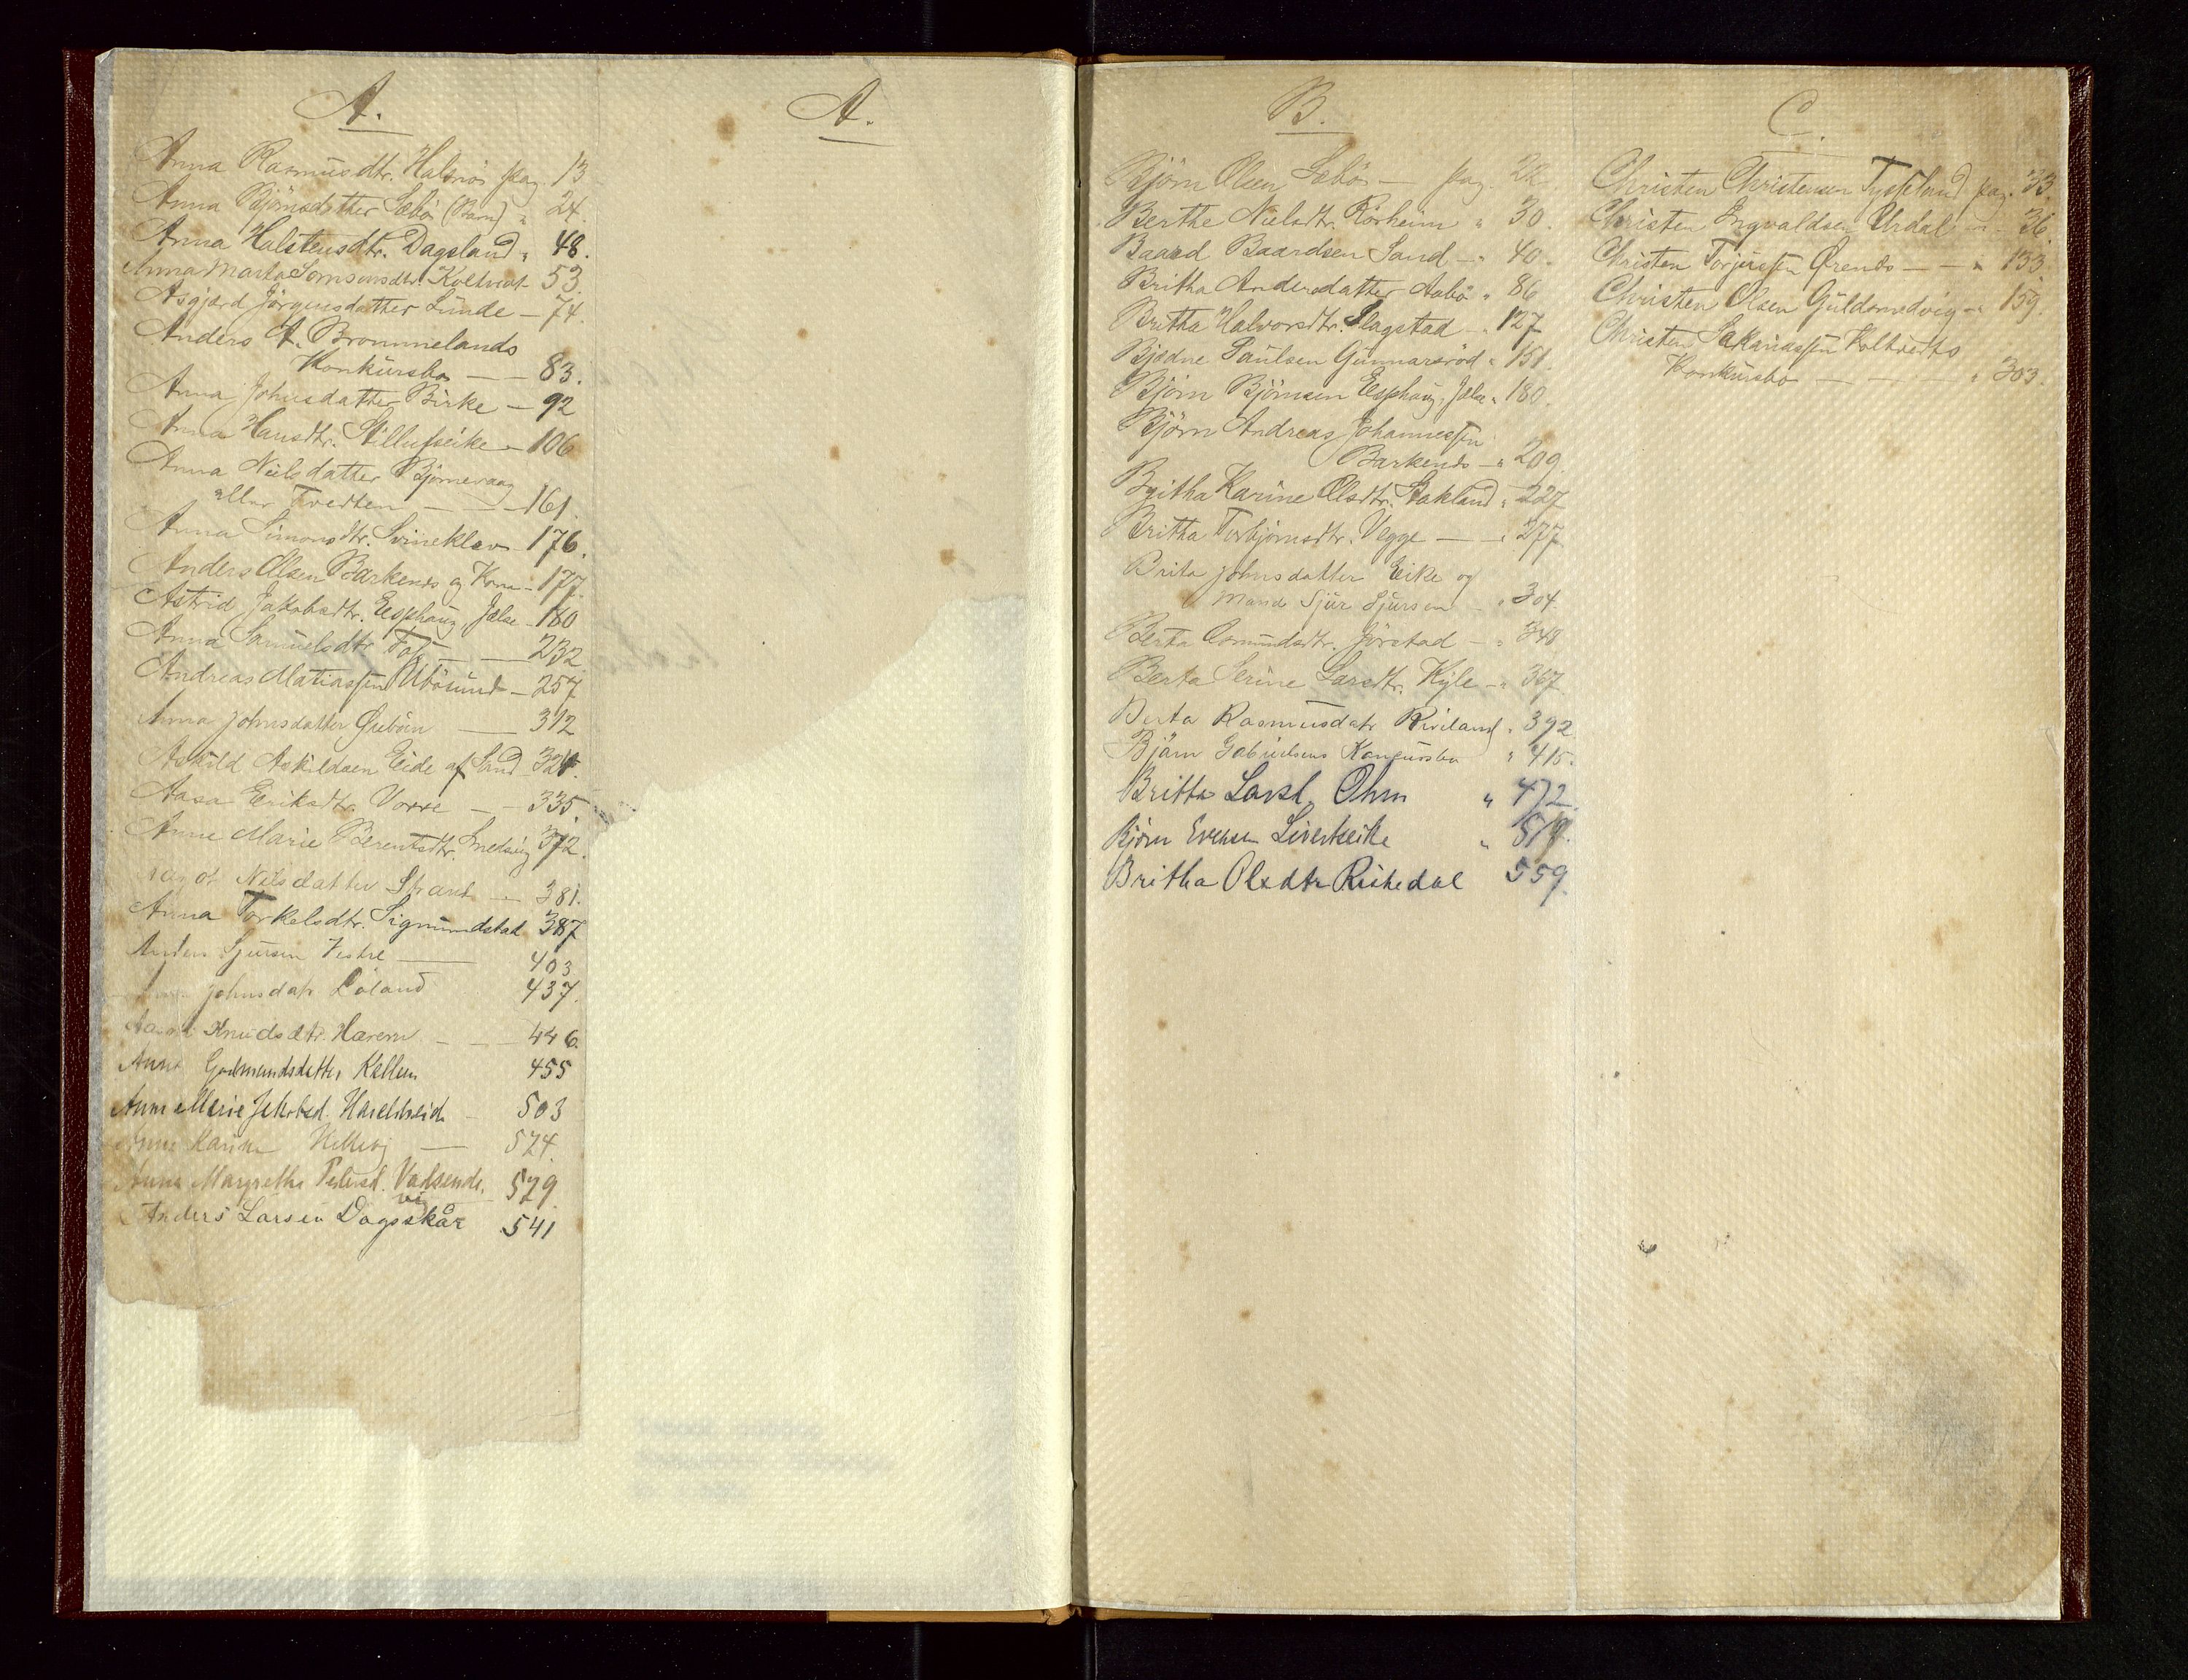 A.
Anna Rasmusdtr. Halsnös pag. 13
Anna Björnsdatter Sæbö (Barn) " 24.
Anna Halstensdtr. Dagsland " 48.
Anna Marta Somsonsdtr. Koltvedt 53.
Asgjærd Jörgensdatter Lunde — 74.
Anders A. Brommelands
Konkursbo — — 83.
Anna Johnsdatter Birke — 92
Anna Hansdtr. — 106
Anna Nielsdatter Björnevaag
eller Tvedten — — 161.
Anna Simonsdtr. Svineklev — 176.
Anders Olsen Barkenes og Kone — 177.
Astrid Jakobsdtr. Eegshaug, Jelse — 180
Anna Samuelsdtr. — — 232
Andreas Matiassen Ubösund — 257
Anna Johnsdatter Öiebön — 312
Askild Askildsen Eide af Sand 324.
Aasa Eriksdtr. Vorre — — 335.
Anne Marie Berentsdtr. 372.
Nilsdatter Strand — 381.
Anna Torkelsdtr. Sigmundstad 387
Anders Sjursen Vestre — 403
Johnsdatr Löland 437.
Knudsdtr. Hæreim — — 446.
Anna Gudmundsdatter Kallem 455
Anne Marie Jakobsd. 503
Anne Karine — 524.
Anna Margrethe Pedersd. Vadsende. 529.
Anders Larsen Dagsvigskår 541
A.
B.
Björn Olsen Sæbö — pag. 22
Berthe Nielsdtr. Rörheim " 30.
Baard Baardsen Sand — " 40.
Britha Andersdatter Aabö " 86
Britha Halvorsdtr. Slagstad — " 127
Bjødne Paulsen Gunnarsröd " 151.
Björn Björnsen Eegshaug, Jelse " 180.
Björn Andreas Johannessen
Barkenes — " 209.
Britha Karine Olsdtr. Stakland " 227
Britha Torbjörnsdtr. Vegge — — " 277
Brita Johnsdatter Eike og
Mand Sjur Sjursen — " 304.
Berta Osmundsdtr. Jörstad — " 348
Berta Serine Larsdtr. Kyle — " 367.
Berta Rasmusdatr " 392
Björn Gabrielsens Konqursbo " 415.
Britta Larsd. Ohm " 472.
Björn Evensen " 519.
Britha Olsdtr Riskedal 559.
C.
Christen Christensen Tysseland pag. 33.
Christen Ingvaldsen Urdal — " 36.
Christen Torjussen Ørenes — — " 133.
Christen Olsen Guldsmedvig — " 159.
Christen Sakariassen Koltvedts
Konkursbo — — — " 303.